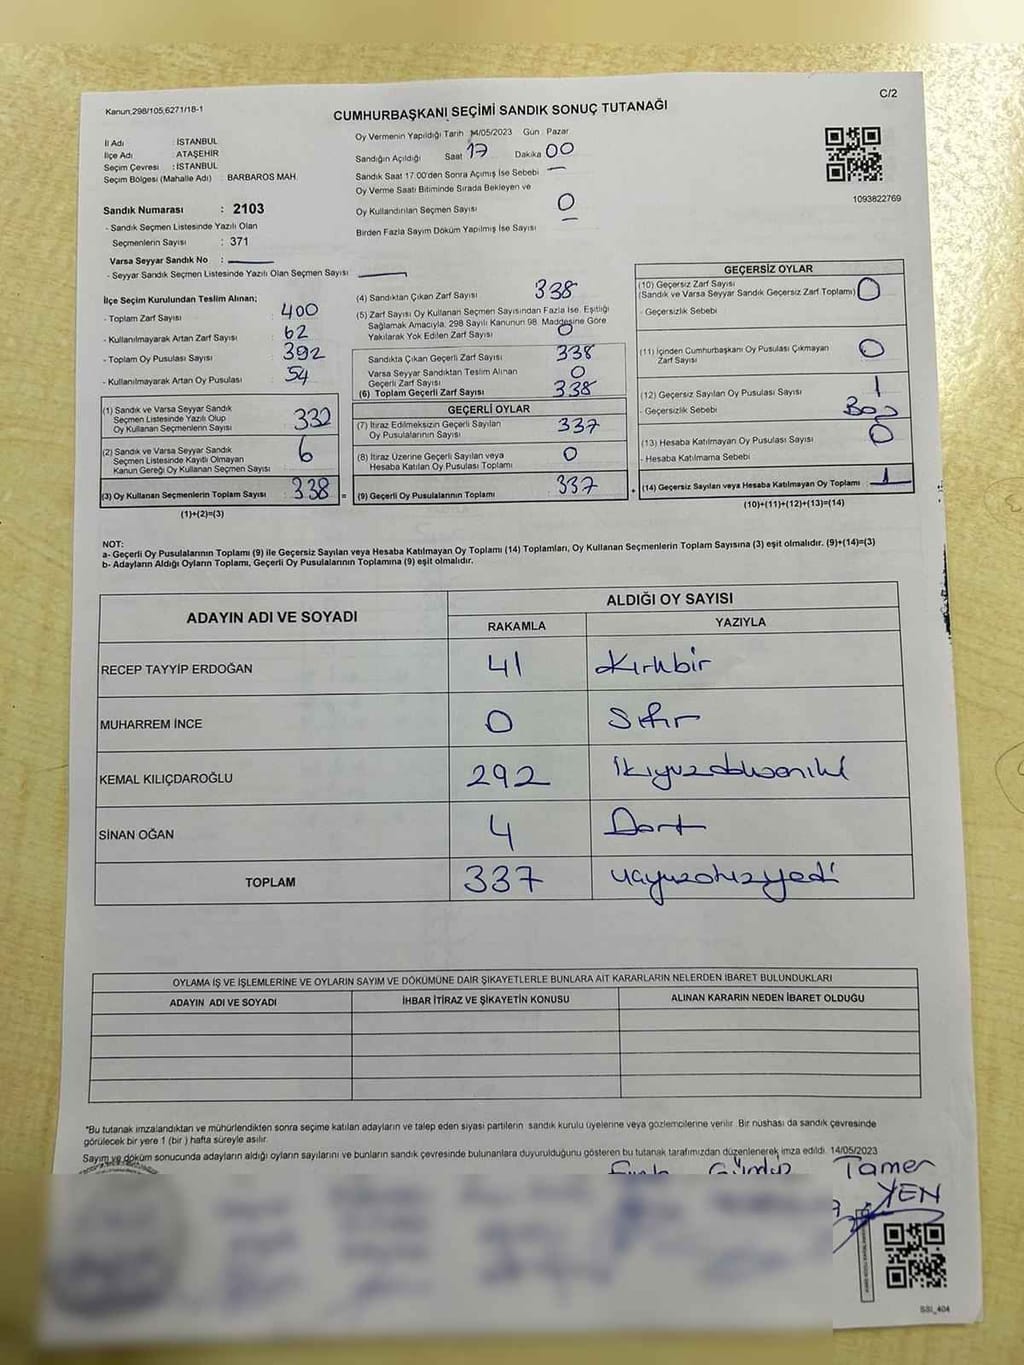 Kanun;298/105,6271/18-1
C/2
CUMHURBAŞKANI SEÇİMİ SANDIK SONUÇ TUTANAĞI
İl Adı : İSTANBUL
İlçe Adı : ATAŞEHİR
Seçim Çevresi : İSTANBUL
Seçim Bölgesi (Mahalle Adı) : BARBAROS MAH.
Sandık Numarası : 2103
- Sandık Seçmen Listesinde Yazılı Olan
Seçmenlerin Sayısı : 371
Varsa Seyyar Sandık No :
- Seyyar Sandık Seçmen Listesinde Yazılı Olan Seçmen Sayısı
Oy Vermenin Yapıldığı Tarih 14/05/2023 Gün : Pazar
Sandığın Açıldığı Saat 17 Dakika 00
Sandık Saat 17.00'den Sonra Açılmış İse Sebebi
Oy Verme Saati Bitiminde Sırada Bekleyen ve
Oy Kullandırılan Seçmen Sayısı 0
Birden Fazla Sayım Döküm Yapılmış İse Sayısı
1093822769
İlçe Seçim Kurulundan Teslim Alınan;
- Toplam Zarf Sayısı : 400
- Kullanılmayarak Artan Zarf Sayısı : 62
- Toplam Oy Pusulası Sayısı : 392
- Kullanılmayarak Artan Oy Pusulası : 54
(1) Sandık ve Varsa Seyyar Sandık
Seçmen Listesinde Yazılı Olup
Oy Kullanan Seçmenlerin Sayısı : 332
(2) Sandık ve Varsa Seyyar Sandık
Seçmen Listesinde Kayıtlı Olmayan
Kanun Gereği Oy Kullanan Seçmen Sayısı : 6
(3) Oy Kullanan Seçmenlerin Toplam Sayısı : 338 =
(1)+(2)=(3)
(4) Sandıktan Çıkan Zarf Sayısı 338
(5) Zarf Sayısı Oy Kullanan Seçmen Sayısından Fazla İse, Eşitliği
Sağlamak Amacıyla, 298 Sayılı Kanunun 98. Maddesine Göre
Yakılarak Yok Edilen Zarf Sayısı : 0
Sandıkta Çıkan Geçerli Zarf Sayısı : 338
Varsa Seyyar Sandıktan Teslim Alınan
Geçerli Zarf Sayısı : 0
(6) Toplam Geçerli Zarf Sayısı : 338
GEÇERLİ OYLAR
(7) İtiraz Edilmeksizin Geçerli Sayılan
Oy Pusulalarının Sayısı : 337
(8) İtiraz Üzerine Geçerli Sayılan veya
Hesaba Katılan Oy Pusulası Toplamı : 0
(9) Geçerli Oy Pusulalarının Toplamı : 337 +
GEÇERSİZ OYLAR
(10) Geçersiz Zarf Sayısı
(Sandık ve Varsa Seyyar Sandık Geçersiz Zarf Toplamı) 0
- Geçersizlik Sebebi
(11) İçinden Cumhurbaşkanı Oy Pusulası Çıkmayan
Zarf Sayısı 0
(12) Geçersiz Sayılan Oy Pusulası Sayısı 1
- Geçersizlik Sebebi Boş
(13) Hesaba Katılmayan Oy Pusulası Sayısı 0
- Hesaba Katılmama Sebebi
(14) Geçersiz Sayılan veya Hesaba Katılmayan Oy Toplamı : 1
(10)+(11)+(12)+(13)=(14)
NOT:
a- Geçerli Oy Pusulalarının Toplamı (9) ile Geçersiz Sayılan veya Hesaba Katılmayan Oy Toplamı (14) Toplamları, Oy Kullanan Seçmenlerin Toplam Sayısına (3) eşit olmalıdır. (9)+(14)=(3)
b- Adayların Aldığı Oyların Toplamı, Geçerli Oy Pusulalarının Toplamına (9) eşit olmalıdır.
ADAYIN ADI VE SOYADI
ALDIĞI OY SAYISI
RAKAMLA YAZIYLA
RECEP TAYYİP ERDOĞAN 41 Kırkbir
MUHARREM İNCE 0 Sıfır
KEMAL KILIÇDAROĞLU 292 İkiyüzdoksaniki
SİNAN OĞAN 4 Dört
TOPLAM 337 üçyüzotuzyedi
OYLAMA İŞ VE İŞLEMLERİNE VE OYLARIN SAYIM VE DÖKÜMÜNE DAİR ŞİKAYETLERLE BUNLARA AİT KARARLARIN NELERDEN İBARET BULUNDUKLARI
ADAYIN ADI VE SOYADI İHBAR İTİRAZ VE ŞİKAYETİN KONUSU ALINAN KARARIN NEDEN İBARET OLDUĞU
*Bu tutanak imzalandıktan ve mühürlendikten sonra seçime katılan adayların ve talep eden siyasi partilerin sandık kurulu üyelerine veya gözlemcilerine verilir. Bir nüshası da sandık çevresinde
görülecek bir yere 1 (bir ) hafta süreyle asılır.
Sayım ve döküm sonucunda adayların aldığı oyların sayılarını ve bunların sandık çevresinde bulunanlara duyurulduğunu gösteren bu tutanak tarafımızdan düzenlenerek imza edildi. 14/05/2023
Gündüz Tamer
YEN
SSI_404